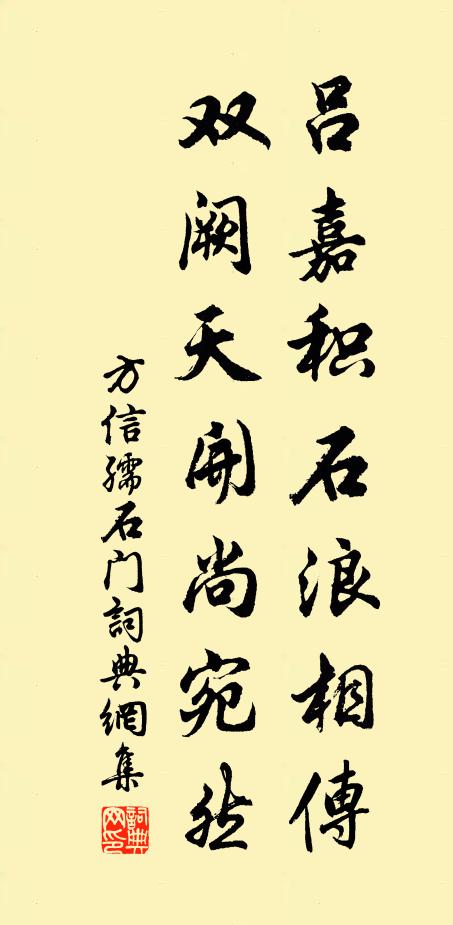 吕嘉积石浪相傳
双阙天開尚宛然
方信孺石门詞典網集
詞典网印